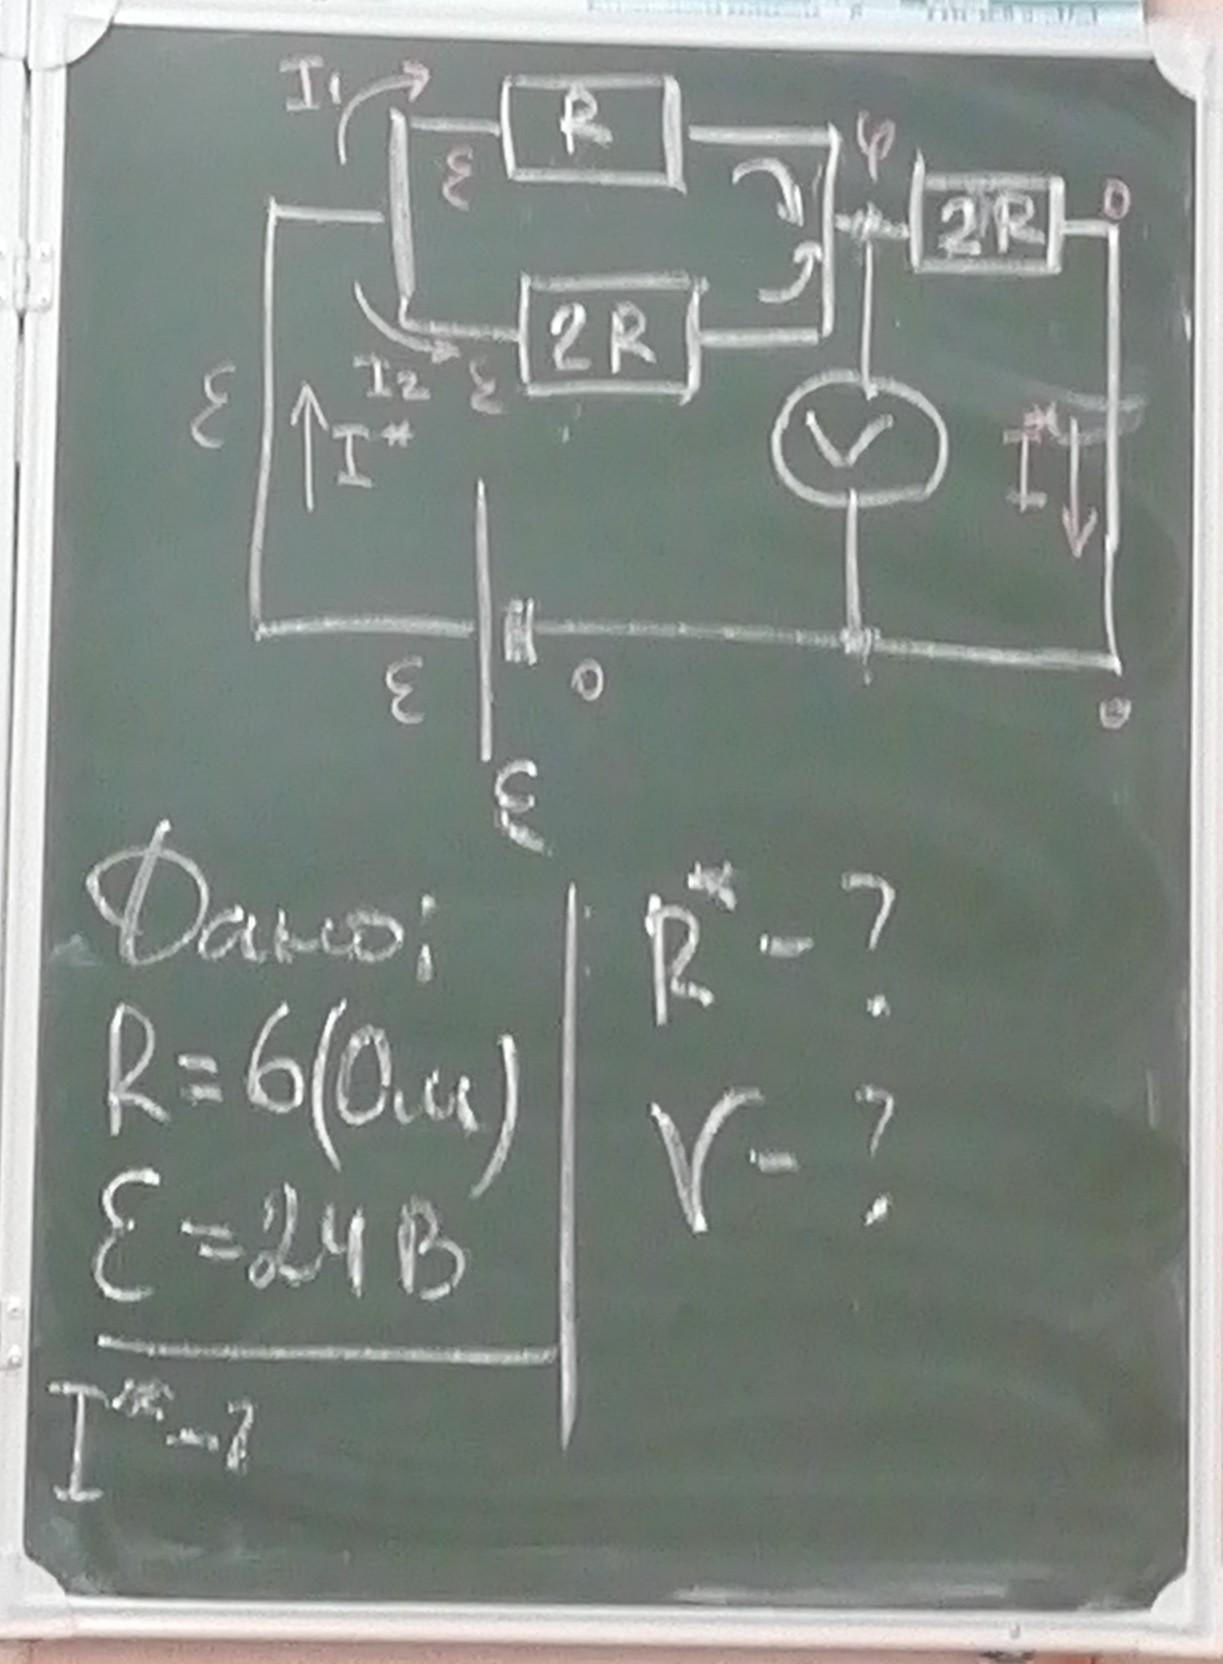 I₁
R
ε
φ
2R
0
2R
I₂
ε
ε
I*
V
I*
ε
0
0
ε
Дано:
R=6(Ом)
ε=24В
I*-?
R*-?
V-?